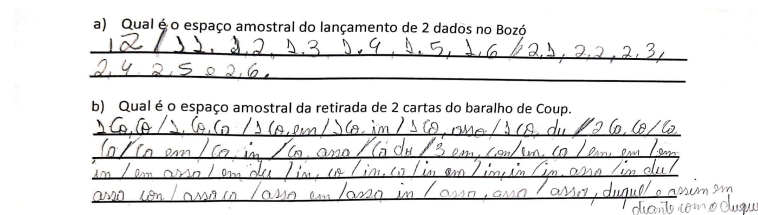 a) Qual é o espaço amostral do lançamento de 2 dados no Bozó
12 / 1 1, 1.2, 1.3 1.4, 1.5, 1,6 // 2.1, 2,2, 2.3,
2,4 2,5 e 2,6.
b) Qual é o espaço amostral da retirada de 2 cartas do baralho de Coup.
1 Co, Co / 1, Co, Ca / 1 Co, em / 1 Co, in / 1 Co, asso / 1 Co, du // 2 Ca, Co / Ca,
Ca / Ca em / Ca, in, / Ca, assa / Ca du / 3 em, con / em, ca / em, em / em
in / em assa / em du / in, co / in, ca / in em / in, in / in, assa / in du /
assa con / assa ca / assa em / assa in / assa, assa / assa, duque / e assim em
diante com o duque